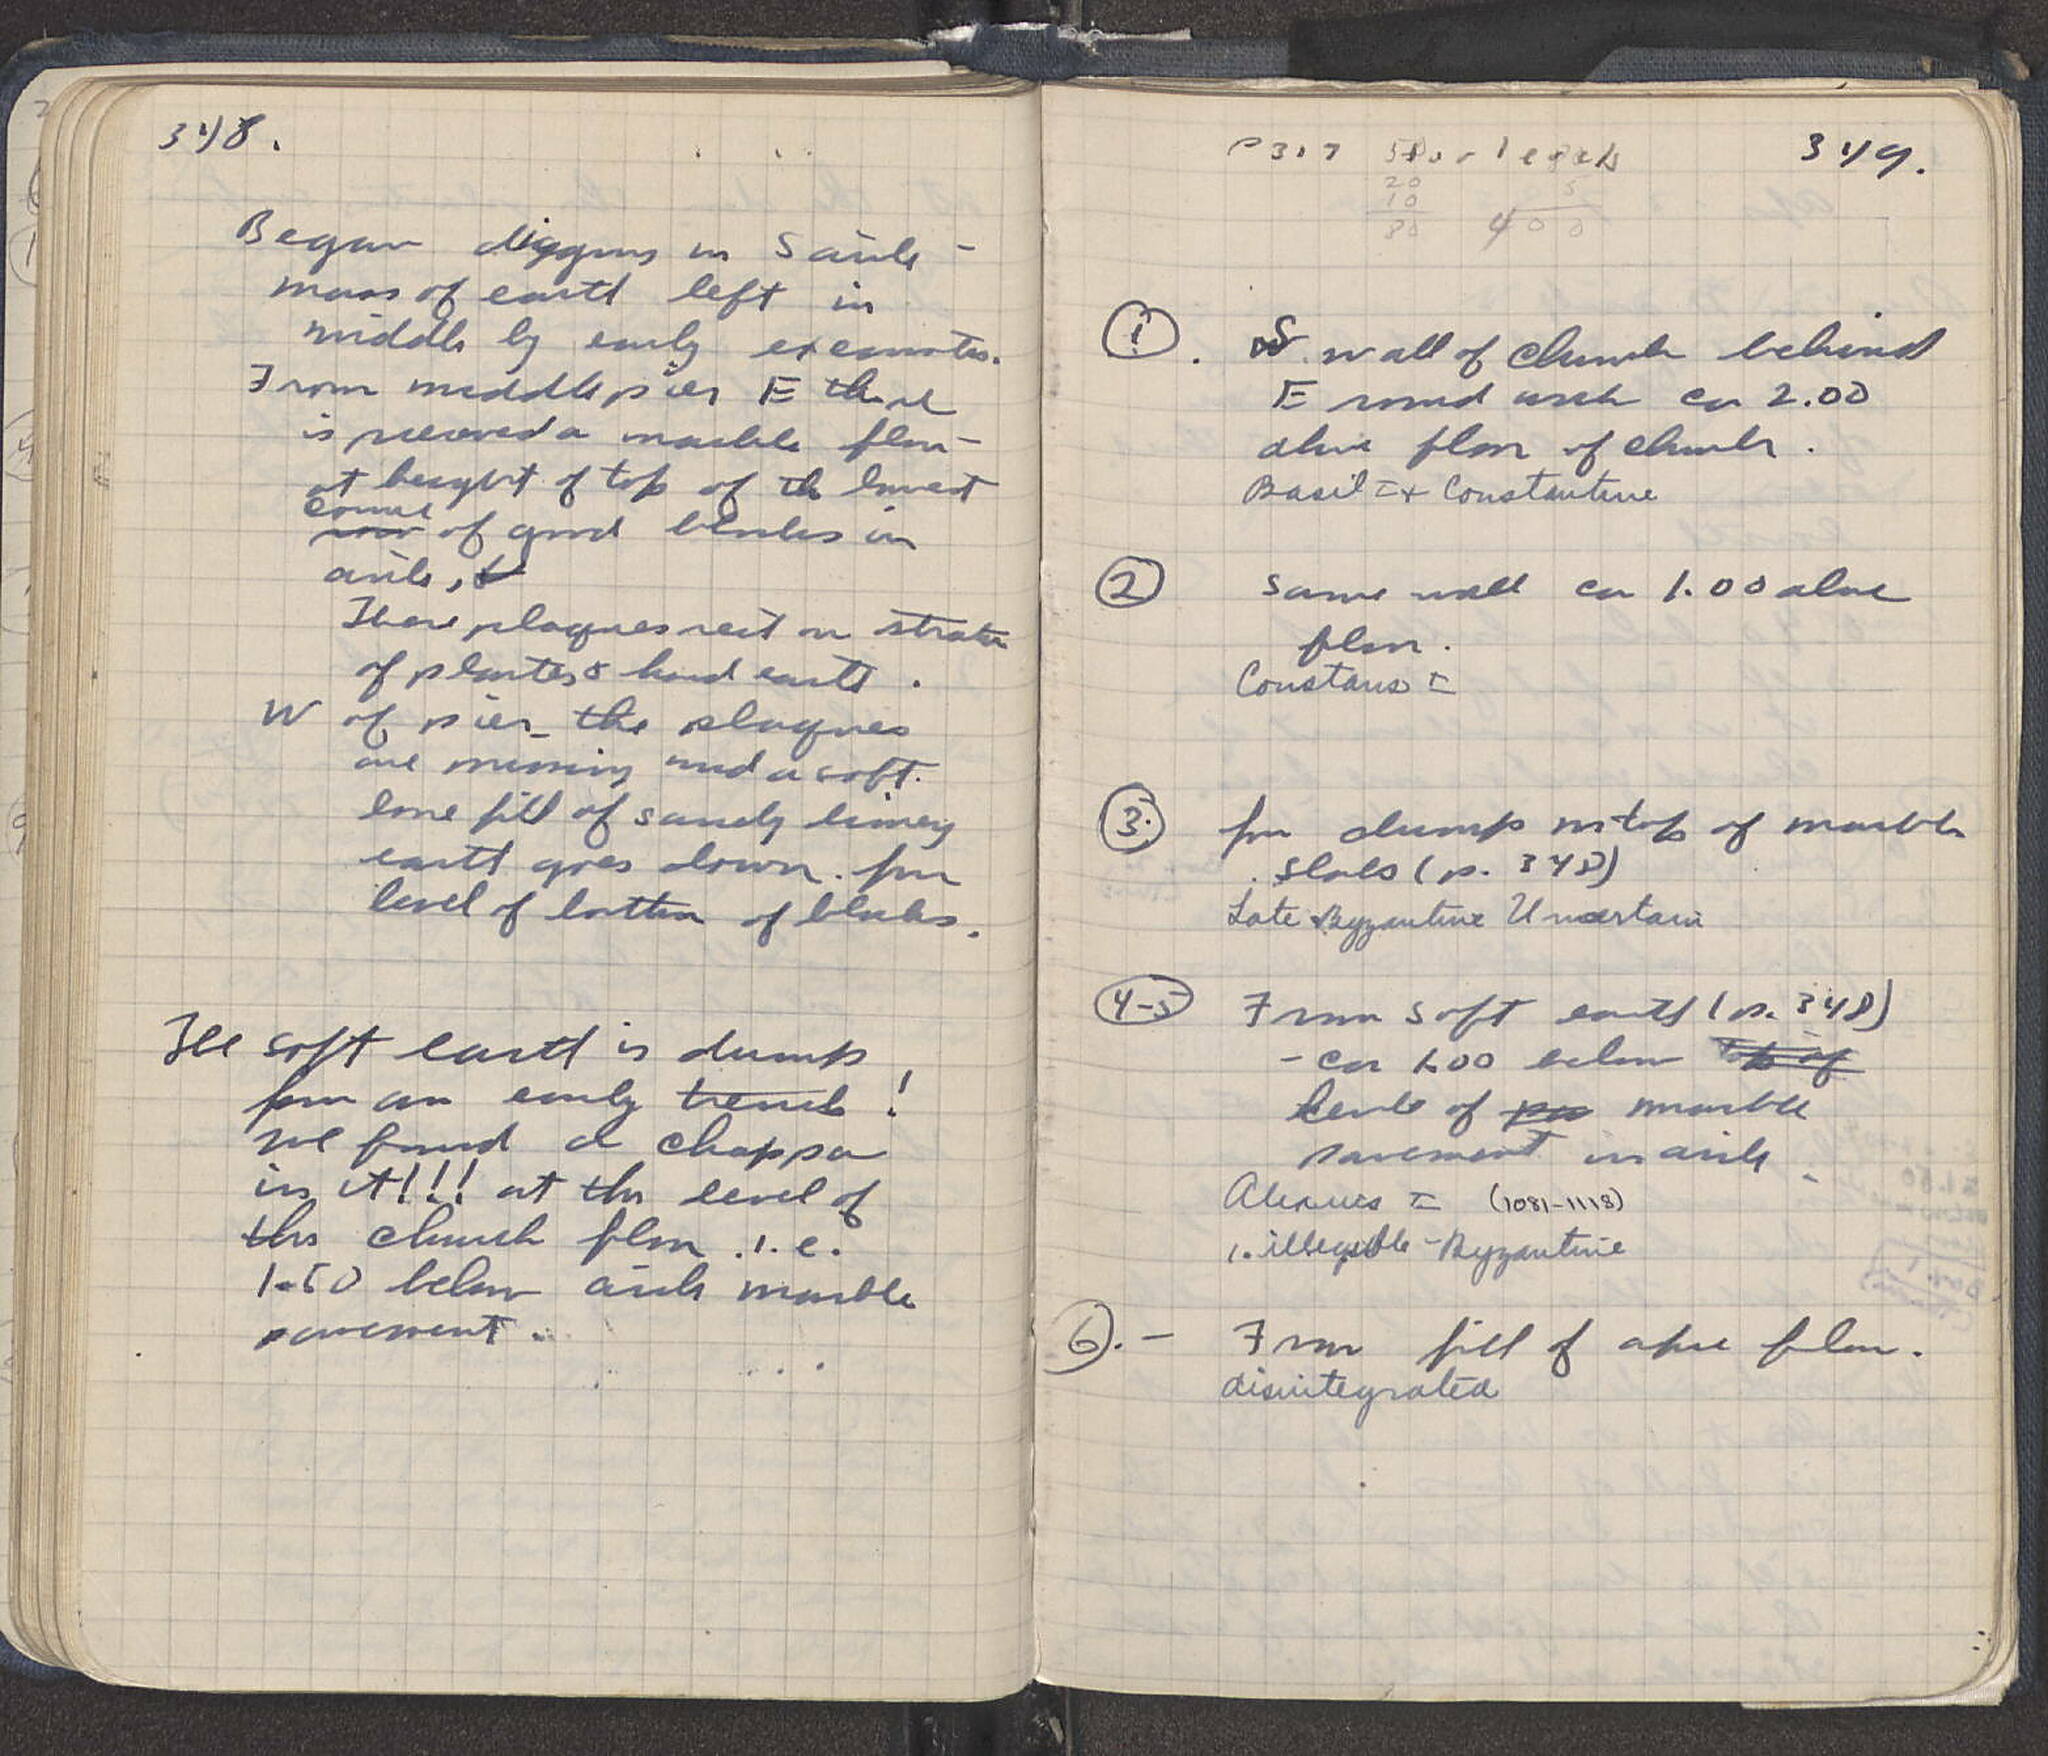 348.
Began digging in S aisle -
mass of earth left in
middle by early excavators.
From middle pier E there
is preserved a marble floor -
at height of top of the lowest
course
row of good blocks in
aisle, &
These plaques rest on strata
of plaster & hard earth.
W of pier the plaques
are missing and a soft
lone fill of sandy limey
earth goes down from
level of bottom of blocks.
The soft earth is dump
from an early trench!
We found a chappa
in it!!! at the level of
the church floor i.e.
1.50 below aisle marble
pavement.
349.
P 317
20 5
10
80 400
1. S. wall of church behind
E round arch ca 2.00
above floor of church.
Basil I + Constantine
2 Same wall ca 1.00 above
floor.
Constans II
3. from dump on top of marble
slabs (p. 348)
Late Byzantine Uncertain
4-5 From soft earth (p. 348)
- ca 1.00 below top of
level of marble
pavement in aisle.
Alexius I (1081-1118)
1. illegible - Byzantine
6. - From fill of apse floor.
disintegrated